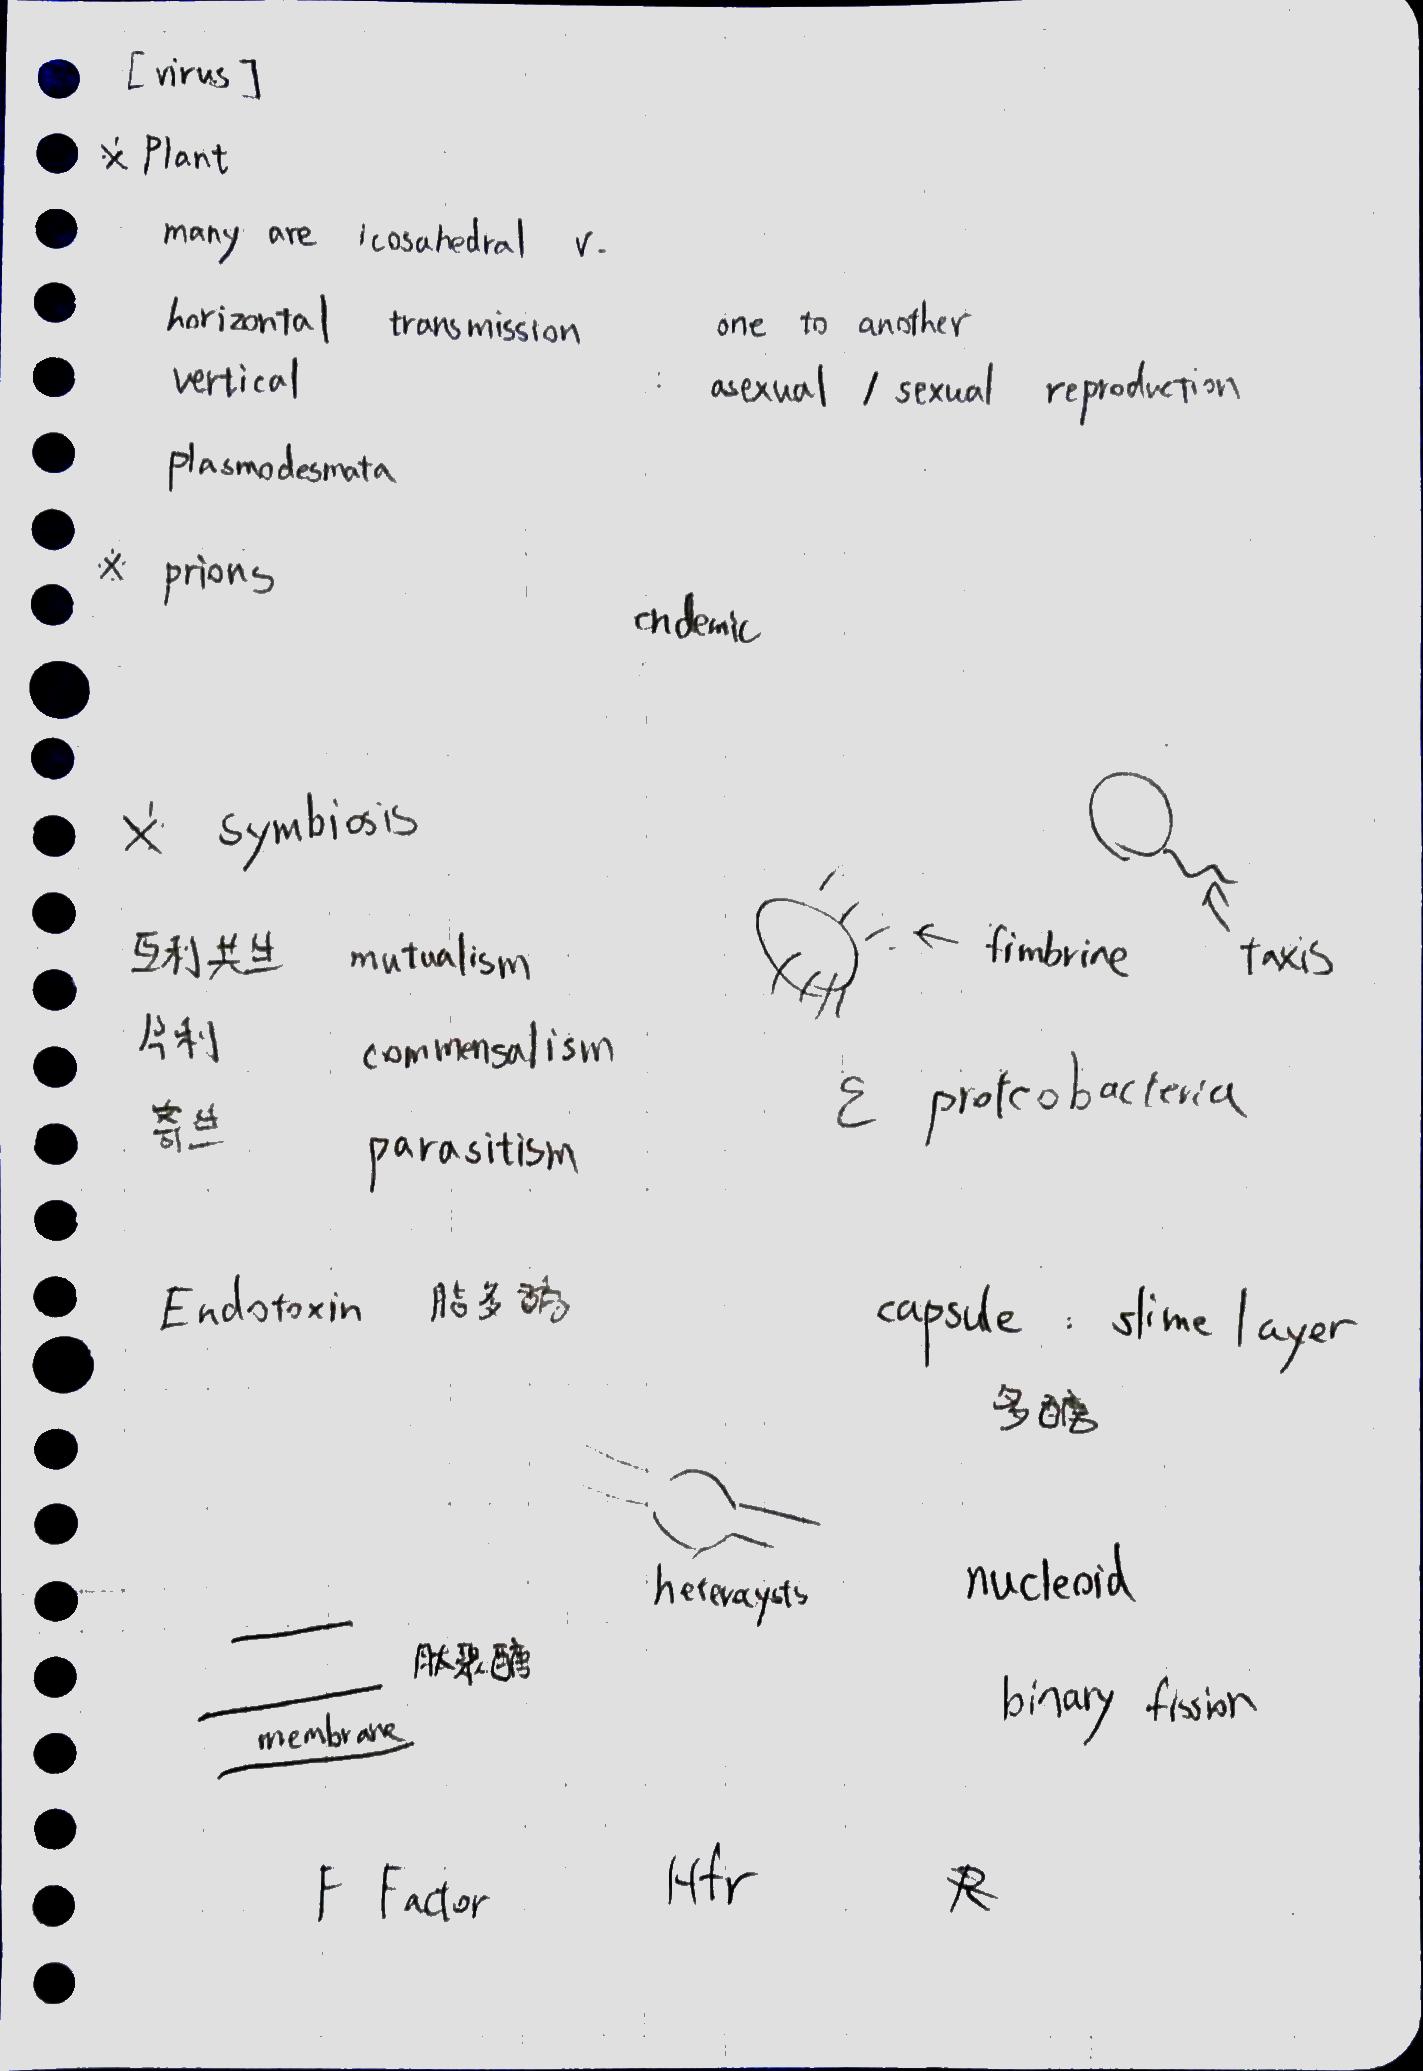 [virus]
※ Plant
many are icosahedral v.
horizontal transmission one to another
vertical : asexual / sexual reproduction
plasmodesmata
※ prions
endemic
※ symbiosis
互利共生 mutualism
← fimbrine taxis
片利 commensalism
ε proteobacteria
寄生 parasitism
Endotoxin 脂多醣
capsule : slime layer
多醣
heterocysts
nucleoid
肽聚醣
membrane
binary fission
F Factor Hfr R